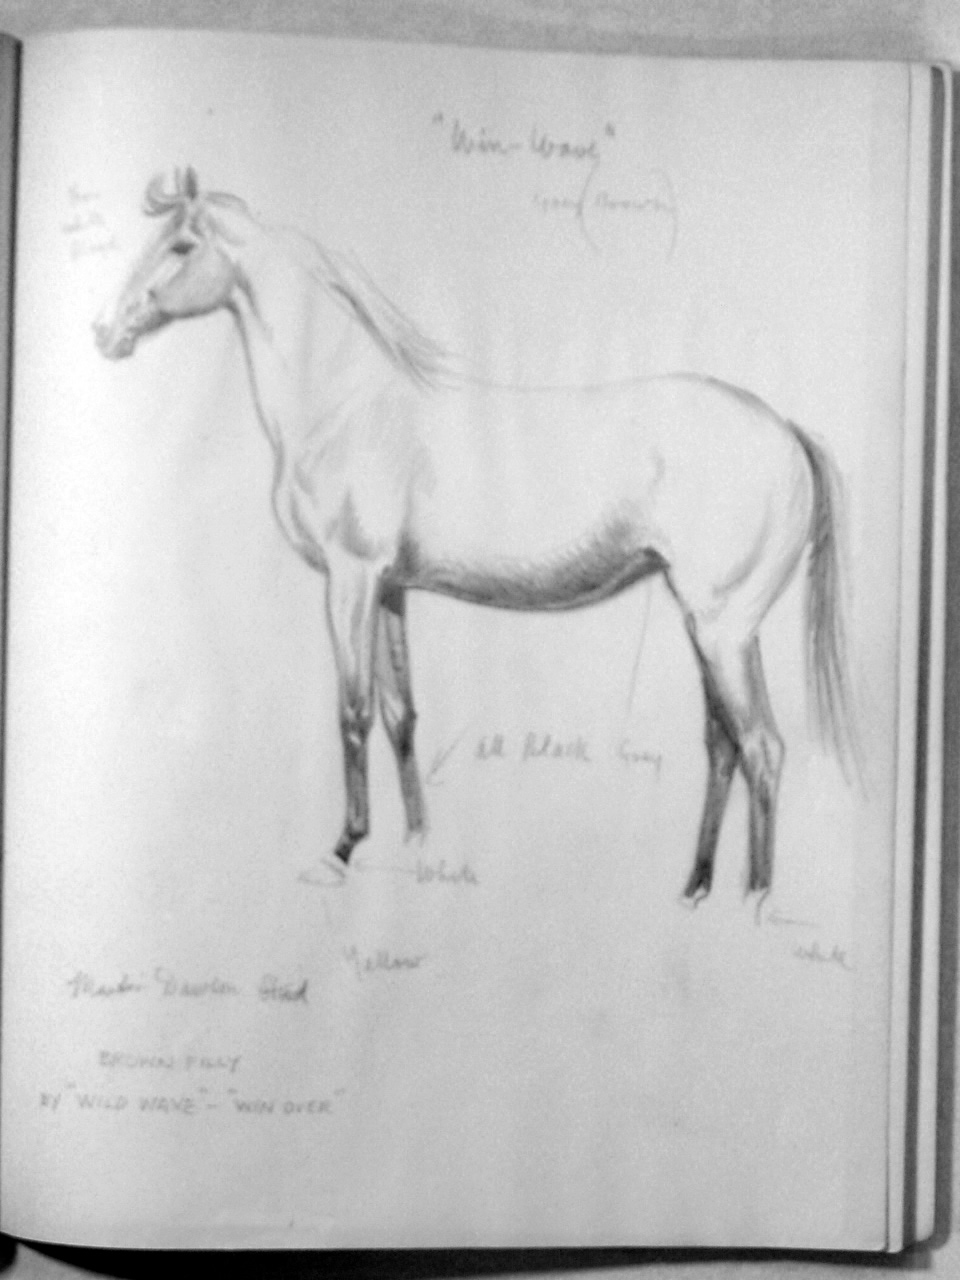 "Win-Wave"
Grey (Brown)
All Black Grey
White
White
Yellow
Martin Dawson Stud
BROWN FILLY
BY "WILD WAVE" - "WIN OVER"